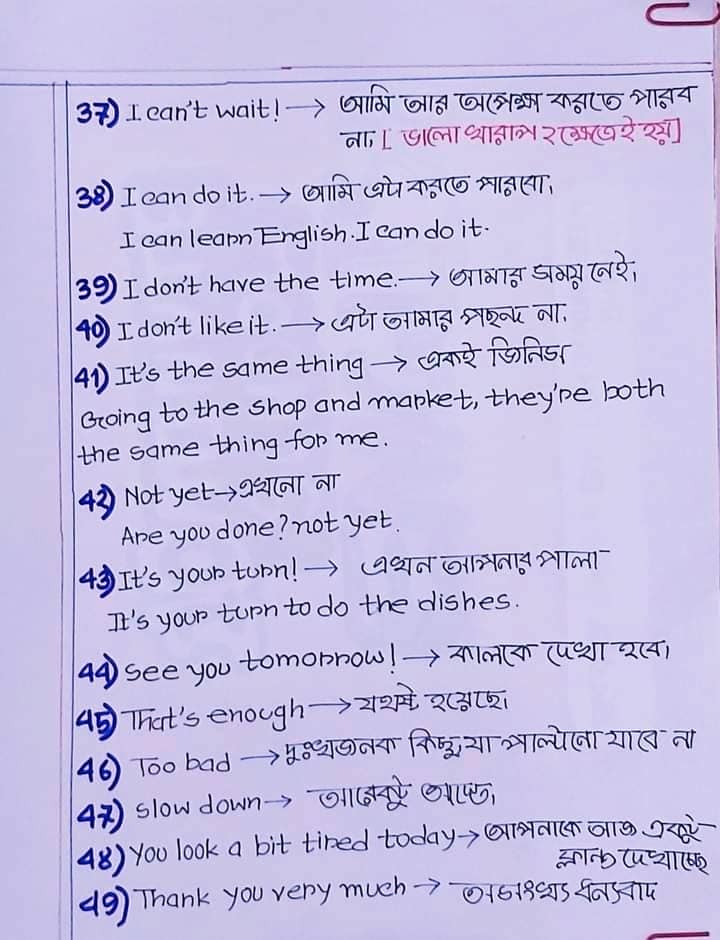 37) I can't wait! → আমি আর অপেক্ষা করতে পারব
না, [ভালো খারাপ ২ক্ষেত্রেই হয়]
38) I can do it. → আমি এটা করতে পারবো,
I can learn English. I can do it.
39) I don't have the time. → আমার সময় নেই,
40) I don't like it. → এটা আমার পছন্দ না,
41) It's the same thing → একই জিনিস
Going to the shop and market, they're both
the same thing for me.
42) Not yet → এখনো না
Are you done? not yet.
43) It's your turn! → এখন আপনার পালা
It's your turn to do the dishes.
44) See you tomorrow! → কালকে দেখা হবে,
45) That's enough → যথেষ্ট হয়েছে,
46) Too bad → দুঃখজনক কিছু, যা পাল্টানো যাবে না
47) Slow down → আরেকটু আস্তে,
48) You look a bit tired today → আপনাকে আজ একটু
ক্লান্ত দেখাচ্ছে
49) Thank you very much → অসংখ্য ধন্যবাদ